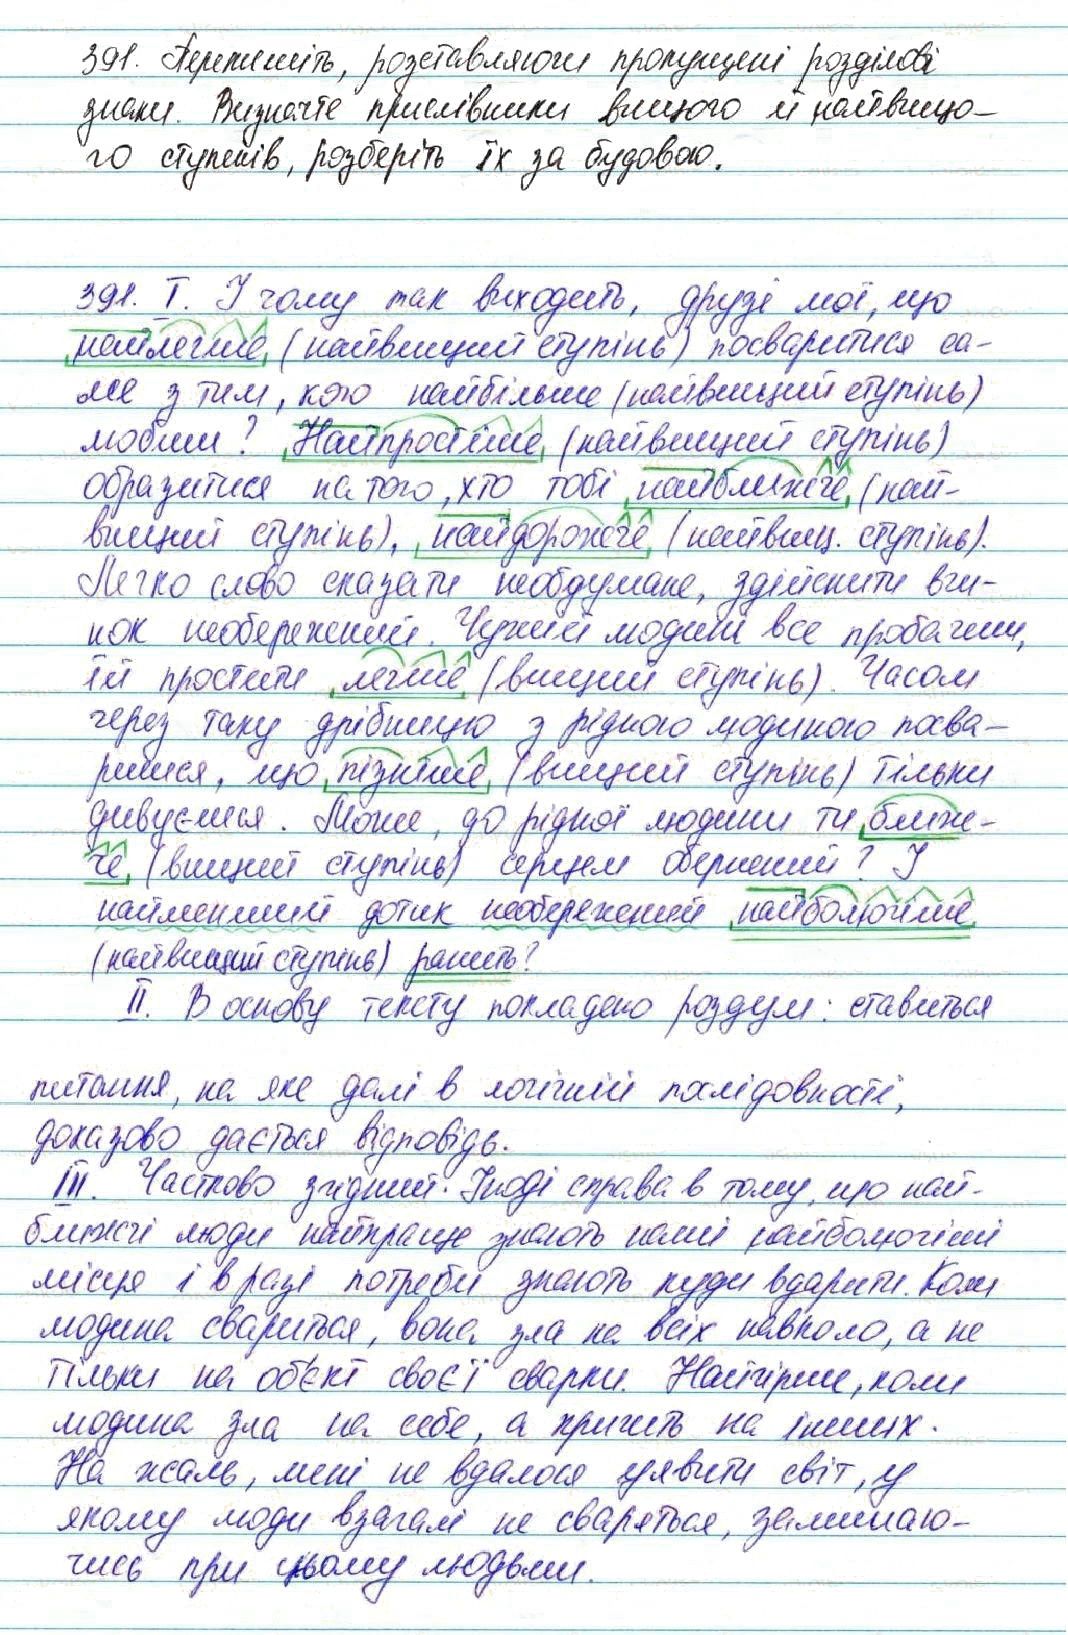 391. Перепишіть, розставляючи пропущені розділові
знаки. Визначте прислівники вищого й найвищо-
го ступенів, розберіть їх за будовою.
391. І. І чому так виходить, друзі мої, що
найлегше (найвищий ступінь) посваритися са-
ме з тим, кого найбільше (найвищий ступінь)
любиш? Найпростіше (найвищий ступінь)
образитися на того, хто тобі найближче (най-
вищий ступінь), найдорожче (найвищ. ступінь).
Легко слово сказати необдумане, здійснити вчи-
нок необережний. Чужій людині все пробачиш,
їй простити легше (вищий ступінь). Часом
через таку дрібницю з рідною людиною посва-
ришся, що пізніше (вищий ступінь) тільки
дивуєшся. Може, до рідної людини ти ближ-
че (вищий ступінь) серцем обернений? І
найменший дотик необережний найболючіше
(найвищий ступінь) ранить?
ІІ. В основу тексту покладено роздум: ставиться
питання, на яке далі в логічній послідовності,
доказово дається відповідь.
ІІІ. Частково згідний. Іноді справа в тому, що най-
ближчі люди найкраще знають наші найболючіші
місця і в разі потреби знають куди вдарити. Коли
людина свариться, вона зла на всіх навколо, а не
тільки на об'єкт своєї сварки. Найгірше, коли
людина зла на себе, а кричить на інших.
На жаль, мені не вдалося уявити світ, у
якому люди взагалі не сваряться, залишаю-
чись при цьому людьми.